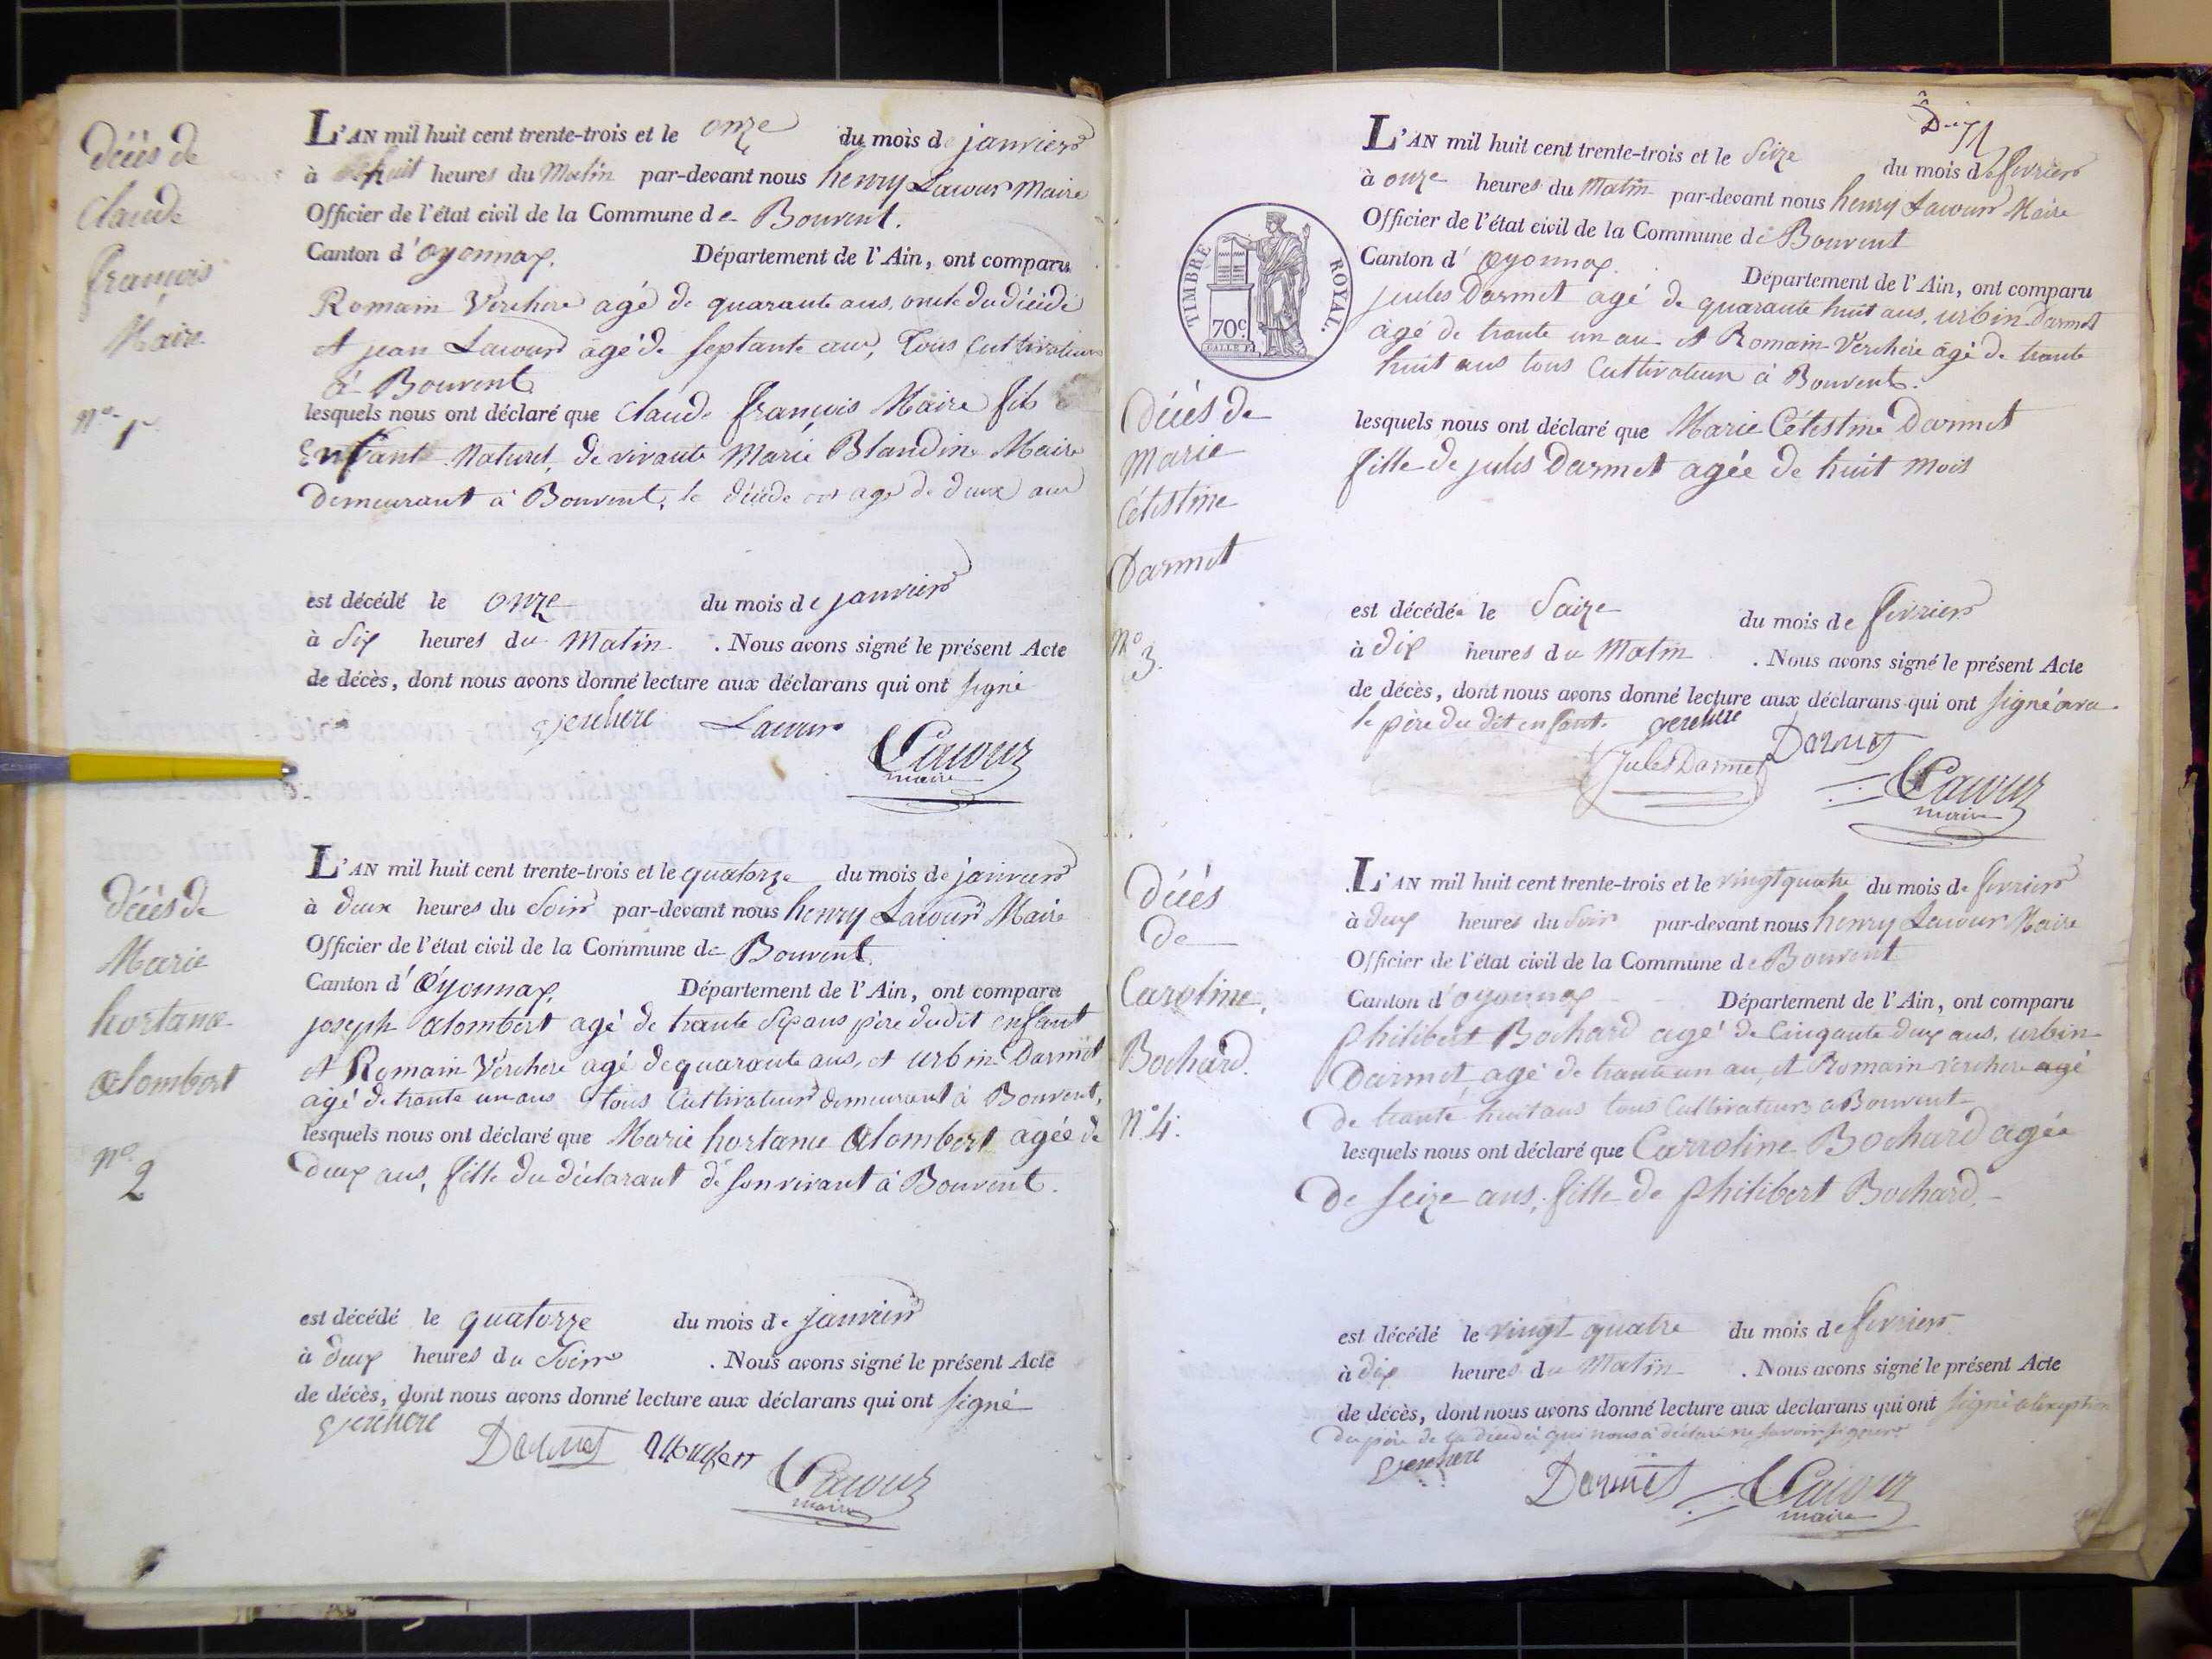 Décès de
Claude
françois
Maire
N° 1er
L'AN mil huit cent trente-trois et le onze du mois de janvier
à huit heures du Matin par-devant nous henry Lacour Maire
Officier de l'état civil de la Commune de Bouvent.
Canton d'Oyonnax. Département de l'Ain, ont comparu
Romain Verchere agé de quarante ans, oncle du décédé
et jean Lacour agé de septante ans, Tous Cultivateurs
à Bouvent
lesquels nous ont déclaré que Claude françois Maire fils
Enfant Naturel, de vivante Marie Blandine Maire
Demeurant à Bouvent, le décédé est agé de deux ans
est décédé le onze du mois de janvier
à dix heures du Matin . Nous avons signé le présent Acte
de décès, dont nous avons donné lecture aux déclarans qui ont signé
Verchere Lacour
Lacour
maire
Décès de
Marie
hortance
alombert
N° 2
L'AN mil huit cent trente-trois et le quatorze du mois de janvier
à deux heures du Soir par-devant nous henry Lacour Maire
Officier de l'état civil de la Commune de Bouvent.
Canton d'Oyonnax. Département de l'Ain, ont comparu
joseph alombert agé de trante sep ans père dudit enfant
et Romain Verchere agé de quarante ans, et urbin Darmet
agé de trante un ans tous Cultivateurs demeurant à Bouvent,
lesquels nous ont déclaré que Marie hortance alombert agée de
deux ans, fille du déclarant de son vivant à Bouvent.
est décédé le quatorze du mois de janvier
à deux heures du Soir . Nous avons signé le présent Acte
de décès, dont nous avons donné lecture aux déclarans qui ont signé
Verchere Darmet
Lacour
maire
Dix
TIMBRE ROYAL.
70c
Décès de
Marie
Célestine
Darmet
N° 3.
L'AN mil huit cent trente-trois et le Seize du mois de fevrier
à onze heures du Matin par-devant nous henry Lacour Maire
Officier de l'état civil de la Commune de Bouvent
Canton d'Oyonnax. Département de l'Ain, ont comparu
jeules Darmet agé de quarante huit ans, urbin Darmet
agé de trante un an et Romain Verchere agé de trante
huit ans tous Cultivateur à Bouvent.
lesquels nous ont déclaré que Marie Célestine Darmet
fille de jules Darmet agée de huit mois
est décédée le Saize du mois de fevrier
à dix heures du Matin . Nous avons signé le présent Acte
de décès, dont nous avons donné lecture aux déclarans qui ont signé avec
le père du dit enfant. Verchere
Jules Darmet Darmet
Lacour
maire
Décès
de
Caroline,
Bochard.
N° 4.
L'AN mil huit cent trente-trois et le vingt quatre du mois de fevrier
à deux heures du Soir par-devant nous henry Lacour Maire
Officier de l'état civil de la Commune de Bouvent
Canton d'oyonnax Département de l'Ain, ont comparu
philibert Bochard agé de Cinqante deux ans, urbin
Darmet agé de trante un an, et Romain Verchere agé
de trante huit ans tous Cultivateurs à Bouvent
lesquels nous ont déclaré que Carroline Bochard agée
de seize ans, fille de philibert Bochard.
est décédé le vingt quatre du mois de fevrier
à dix heures du Matin . Nous avons signé le présent Acte
de décès, dont nous avons donné lecture aux declarans qui ont signé
du père de la décédée qui nous à déclaré ne savoir signer
Verchere Darmet
Lacour
maire